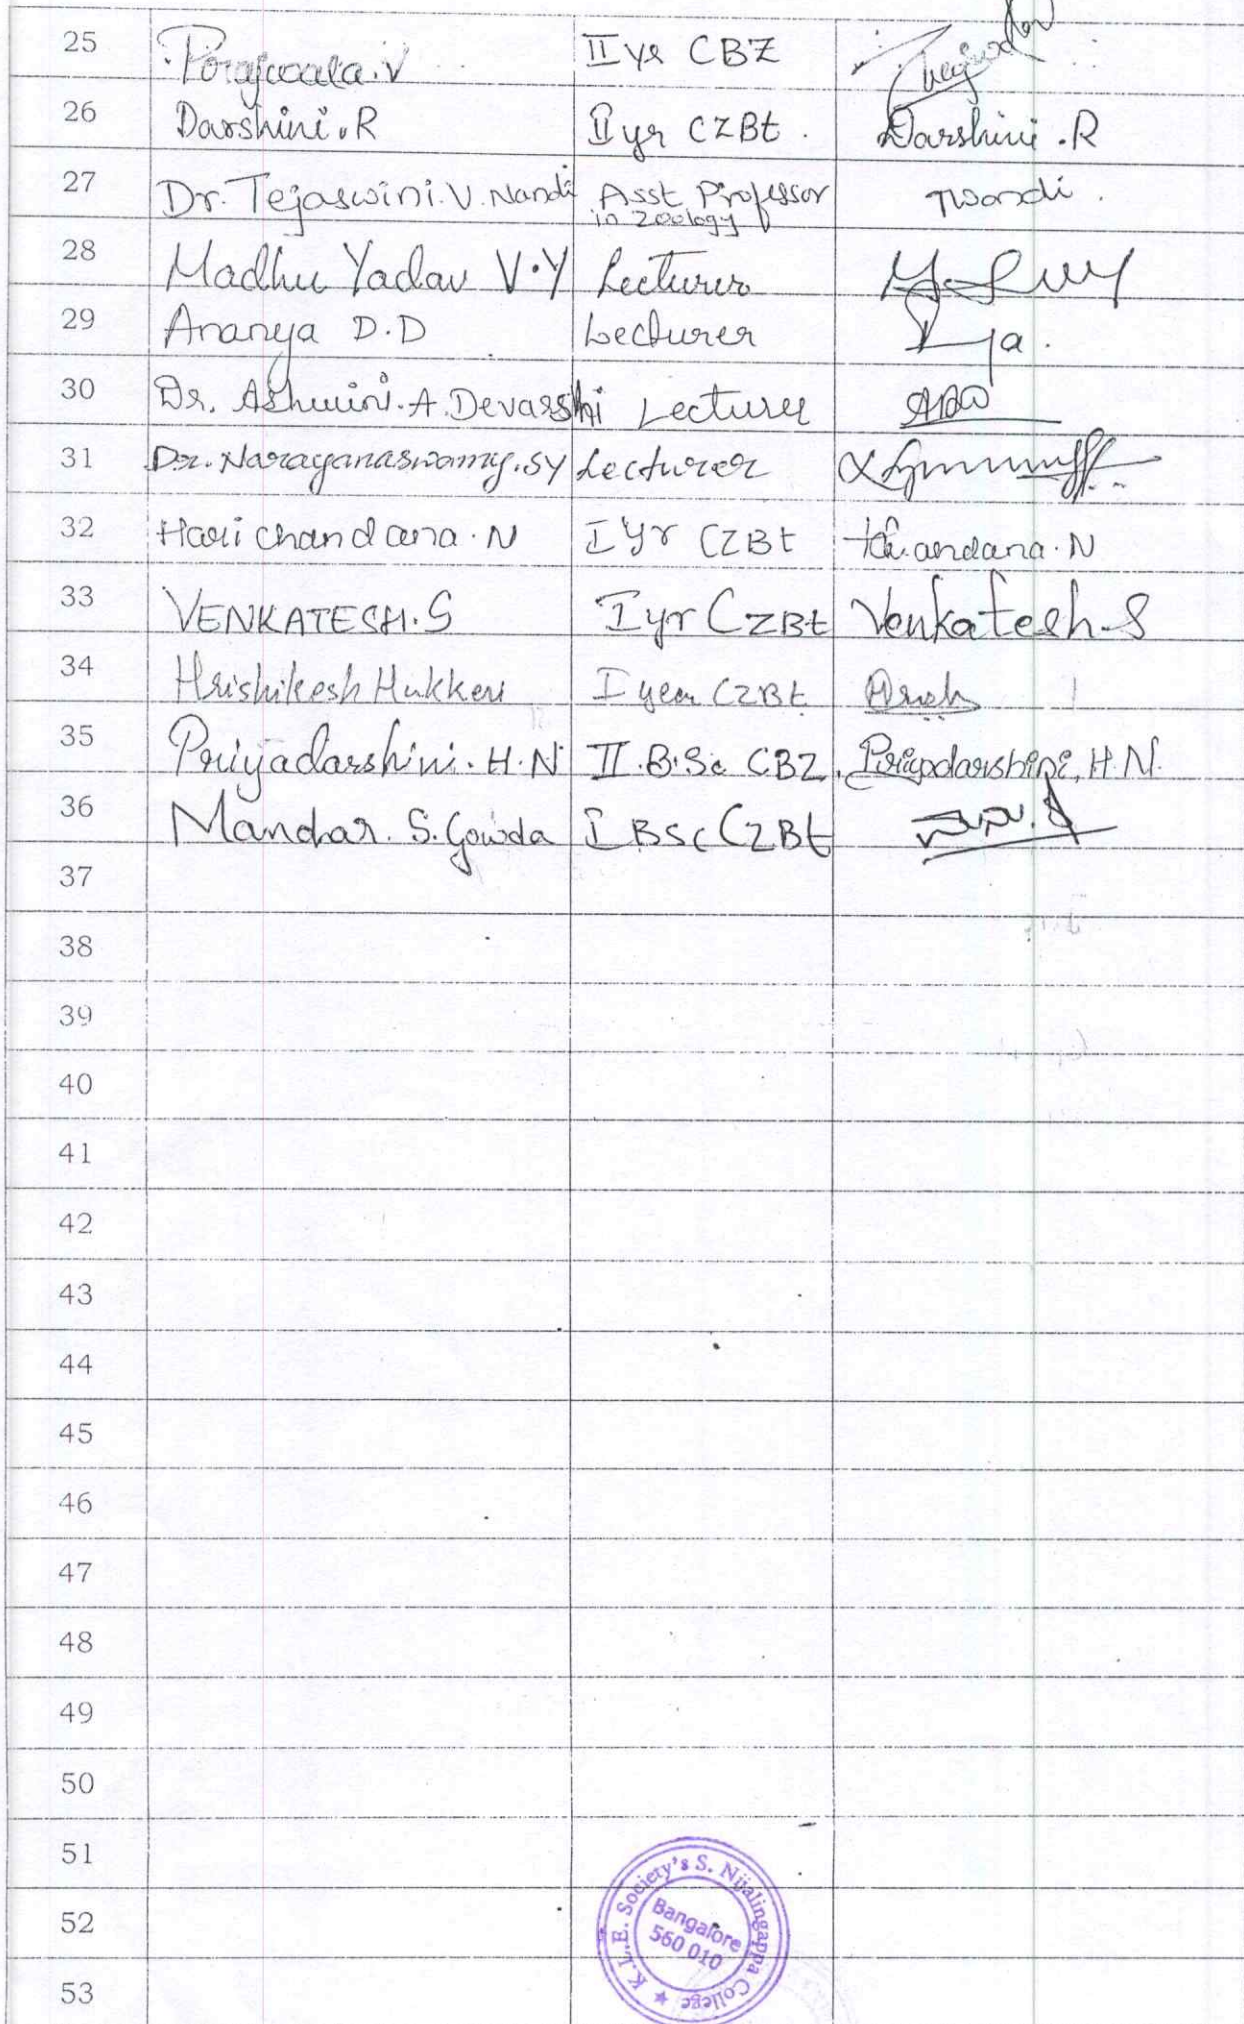 25 Prajwala.V II yr CBZ
26 Darshini.R II yr CZBt. Darshini.R
27 Dr. Tejaswini.V.Nandi Asst Professor
in Zoology
28 Madhu Yadav V.Y Lecturer
29 Ananya D.D Lecturer
30 Dr. Ashwini.A.Devarshi Lecturer
31 Dr. Narayanaswamy.SY Lecturer
32 Hari chandana.N I yr CZBt
33 VENKATESH.S I yr CZBt Venkatesh.S
34 Hrishikesh Hukkeri I year CZBt
35 Priyadarshini.H.N II.B.Sc CBZ. Priyadarshini, H.N.
36 Mandar.S.Gowda I BSc CZBt
37
38
39
40
41
42
43
44
45
46
47
48
49
50
51
52
53
K.L.E. Society's S. Nijalingappa College
Bangalore
560 010